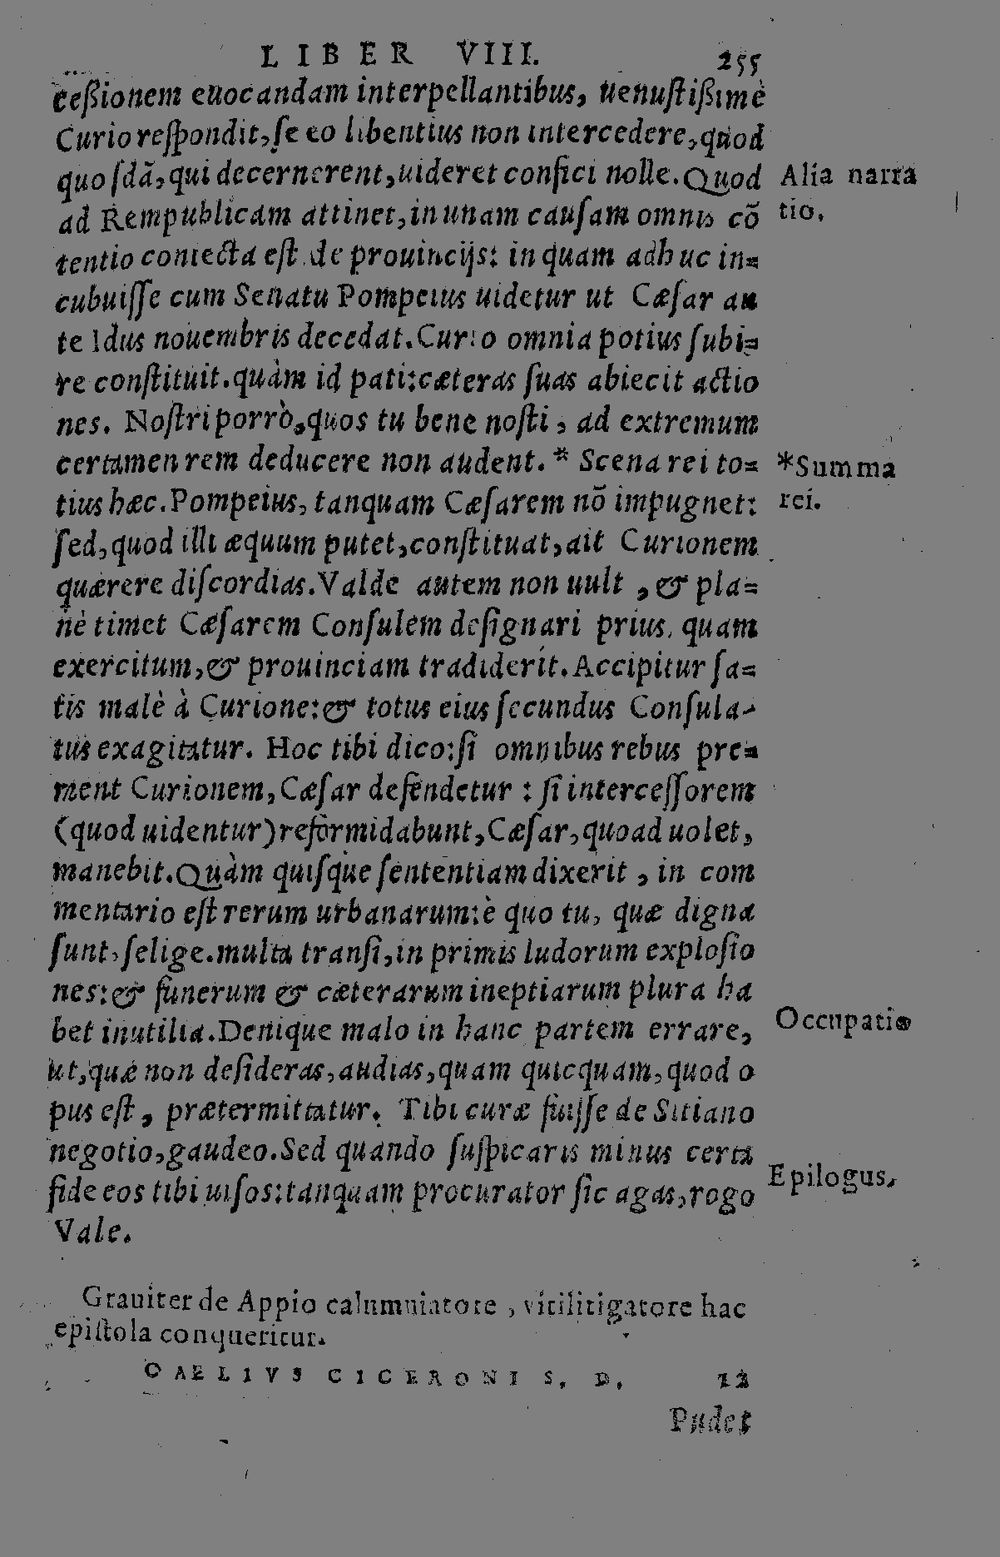 LIBER VIII. 255
ceßionem euocandam interpellantibus, uenustißimè
Curio respondit, se eo libentius non intercedere, quod
quosdã, qui decernerent, uideret confici nolle. Quod
ad Rempublicam attinet, in unam causam omnis cõ
tentio coniecta est de prouincijs: in quam adhuc in=
cubuisse cum Senatu Pompeius uidetur ut Cæsar an
te Idus nouembris decedat. Curio omnia potius subi=
re constituit. quàm id pati: cæteras suas abiecit actio
nes. Nostri porrò, quos tu bene nosti, ad extremum
certamen rem deducere non audent. * Scena rei to=
tius hæc. Pompeius, tanquam Cæsarem nõ impugnet:
sed, quod illi æquum putet, constituat, ait Curionem
quærere discordias. Valde autem non uult, & pla=
nè timet Cæsarem Consulem designari prius, quam
exercitum, & prouinciam tradiderit. Accipitur sa=
tis malè à Curione: & totus eius secundus Consula-
tus exagitatur. Hoc tibi dico: si omnibus rebus pre=
ment Curionem, Cæsar defendetur : si intercessorem
(quod uidentur) reformidabunt, Cæsar, quoad uolet,
manebit. Quàm quisque sententiam dixerit, in com
mentario est rerum urbanarum: è quo tu, quæ digna
sunt, selige. multa transi, in primis ludorum explosio
nes: & funerum & cæterarum ineptiarum plura ha
bet inutilia. Denique malo in hanc partem errare,
ut, quæ non desideras, audias, quam quicquam, quod o
pus est, prætermittatur. Tibi curæ fuisse de Sitiano
negotio, gaudeo. Sed quando suspicaris minus certa
fide eos tibi uisos: tanquam procurator sic agas, rogo
Vale.
Alia narra
tio.
*Summa
rei.
Occupatio
Epilogus.
Grauiter de Appio calumniatore, vitilitigatore hac
epistola conqueritur.
CAELIVS CICERONI S. D. 12
Pudet